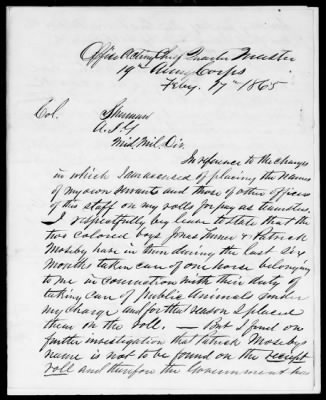 Office Acting Chief Quarter Master
19th Army Corps
Feby. 17th 1865
Col. Sherman
A.I.G
Mid. Mil. Div.
In reference to the charges
in which I am accused of placing the names
of my own servants and those of other officers
of this staff on my rolls for pay as teamsters.
I respectfully beg leave to state that the
two colored boys Jonas Turner & Patrick
Moseby have in turn during the last six
months taken care of one horse belonging
to me in connection with their duty of
taking care of public animals under
my charge and for that reason I placed
them on the roll. — But I find on
further investigation that Patrick Mosebys
name is not to be found on the receipt
roll and therefore the Government has